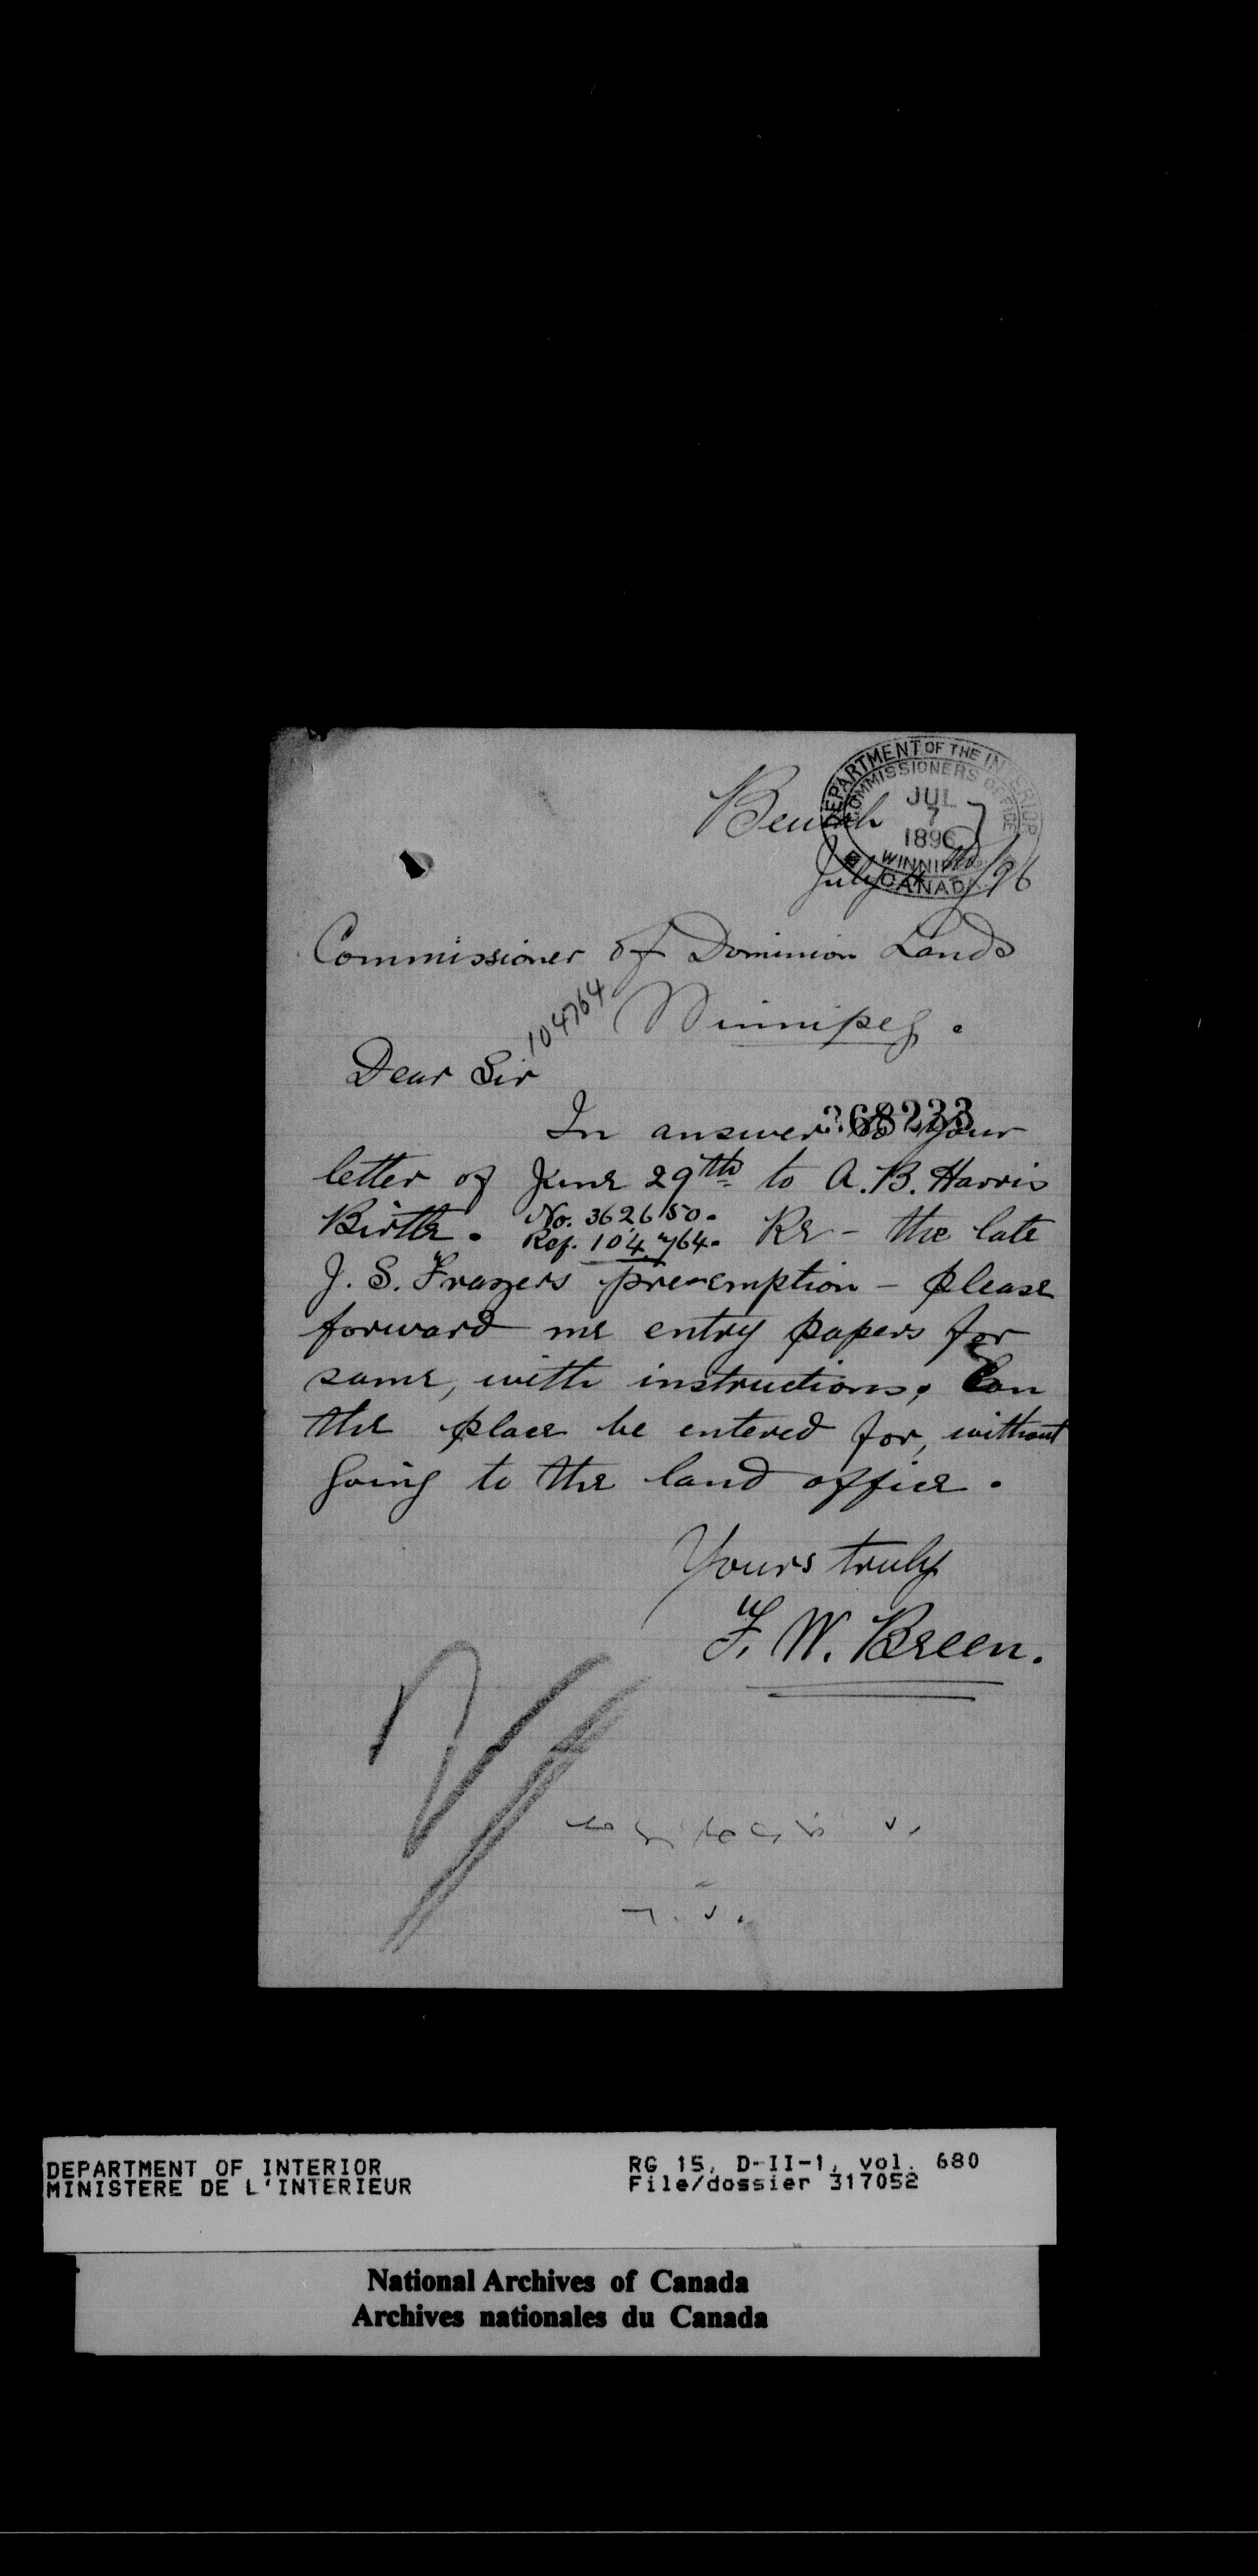 DEPARTMENT OF THE INTERIOR
COMMISSIONERS OFFICE
JUL
7
1896
WINNIPEG
CANADA
Beulah
July 4th/96
Commissioner of Dominion Lands
Winnipeg.
104764
Dear Sir
368233
In answer to your
letter of June 29th to A. B. Harris
Birtle. No. 362650.
Ref. 104764. Re - the late
J. S. Frazers pre-emption - please
forward me entry papers for
same, with instructions. Can
the place be entered for, without
going to the land office.
Yours truly
F. W. Breen.
DEPARTMENT OF INTERIOR
MINISTERE DE L'INTERIEUR
RG 15, D-II-1, vol. 680
File/dossier 317052
National Archives of Canada
Archives nationales du Canada